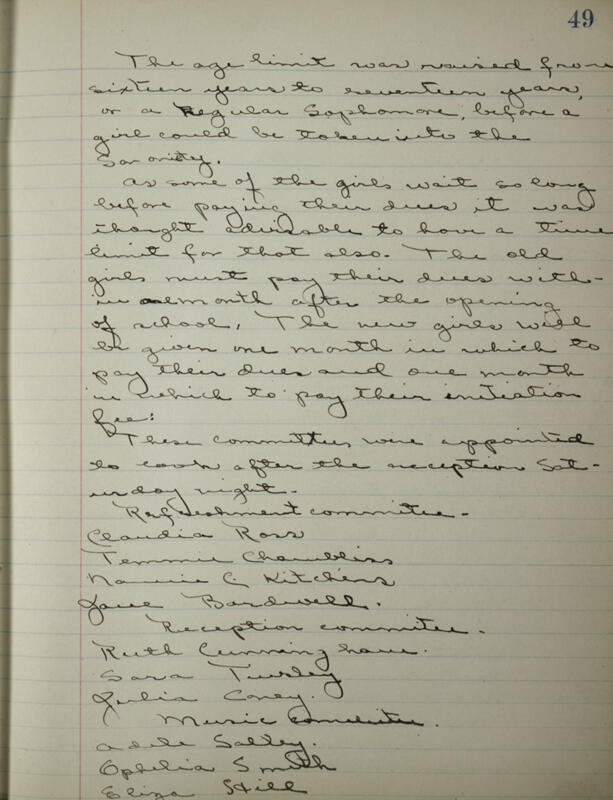 49
The age limit was raised from
sixteen years to seventeen years,
or a Regular Sophomore, before a
girl could be taken into the
Sorority.
As some of the girls wait so long
before paying their dues it was
thought advisable to have a time
limit for that also. The old
girls must pay their dues with-
in a month after the opening
of school. The new girls will
be given one month in which to
pay their dues and one month
in which to pay their initiation
fee.
These committees were appointed
to look after the reception Sat-
urday night.
Refreshment committee.
Claudia Ross
Temmie Chambliss
Nannie C. Kitchens
Jane Bardwell.
Reception commitee.
Ruth Cunningham.
Sara Turley
Julia Coney.
Music committee.
Adele Salley.
Ophelia Smith
Eliza Hill